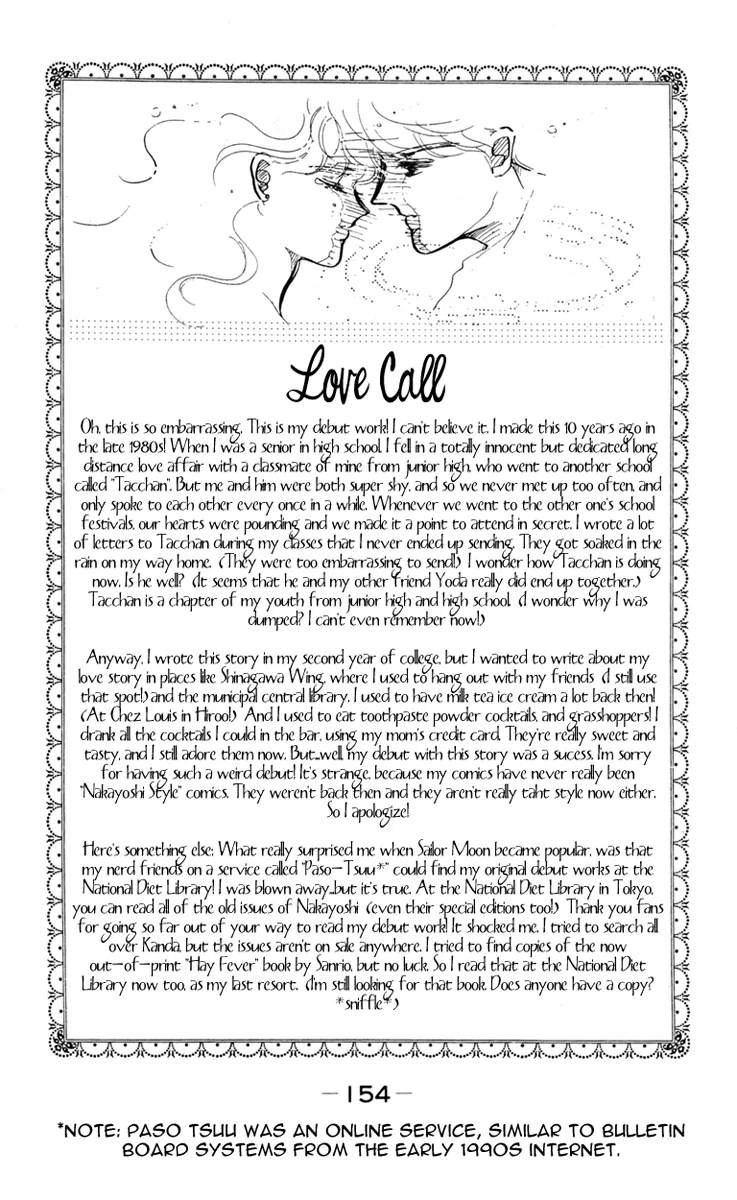 Love Call
Oh, this is so embarrassing. This is my debut work! I can't believe it. I made this 10 years ago in
the late 1980s! When I was a senior in high school, I fell in a totally innocent but dedicated long
distance love affair with a classmate of mine from junior high, who went to another school
called "Tacchan". But me and him were both super shy, and so we never met up too often, and
only spoke to each other every once in a while. Whenever we went to the other one's school
festivals, our hearts were pounding and we made it a point to attend in secret. I wrote a lot
of letters to Tacchan during my classes that I never ended up sending. They got soaked in the
rain on my way home. (They were too embarrassing to send!) I wonder how Tacchan is doing
now. Is he well? (It seems that he and my other friend Yoda really did end up together.)
Tacchan is a chapter of my youth from junior high and high school. (I wonder why I was
dumped? I can't even remember now!)
Anyway, I wrote this story in my second year of college, but I wanted to write about my
love story in places like Shinagawa Wing, where I used to hang out with my friends (I still use
that spot!) and the municipal central library. I used to have milk tea ice cream a lot back then!
(At Chez Louis in Hiroo!) And I used to eat toothpaste powder cocktails, and grasshoppers! I
drank all the cocktails I could in the bar, using my mom's credit card. They're really sweet and
tasty, and I still adore them now. But...well, my debut with this story was a sucess. I'm sorry
for having such a weird debut! It's strange, because my comics have never really been
"Nakayoshi Style" comics. They weren't back then and they aren't really taht style now either.
So I apologize!
Here's something else; What really surprised me when Sailor Moon became popular, was that
my nerd friends on a service called "Paso-Tsuu*" could find my original debut works at the
National Diet Library! I was blown away...but it's true. At the National Diet Library in Tokyo,
you can read all of the old issues of Nakayoshi (even their special editions too!) Thank you fans
for going so far out of your way to read my debut work! It shocked me. I tried to search all
over Kanda, but the issues aren't on sale anywhere. I tried to find copies of the now
out-of-print "Hay Fever" book by Sanrio, but no luck. So I read that at the National Diet
Library now too, as my last resort. (I'm still looking for that book. Does anyone have a copy?
*sniffle*)
- 154 -
*NOTE: PASO TSUU WAS AN ONLINE SERVICE, SIMILAR TO BULLETIN
BOARD SYSTEMS FROM THE EARLY 1990S INTERNET.